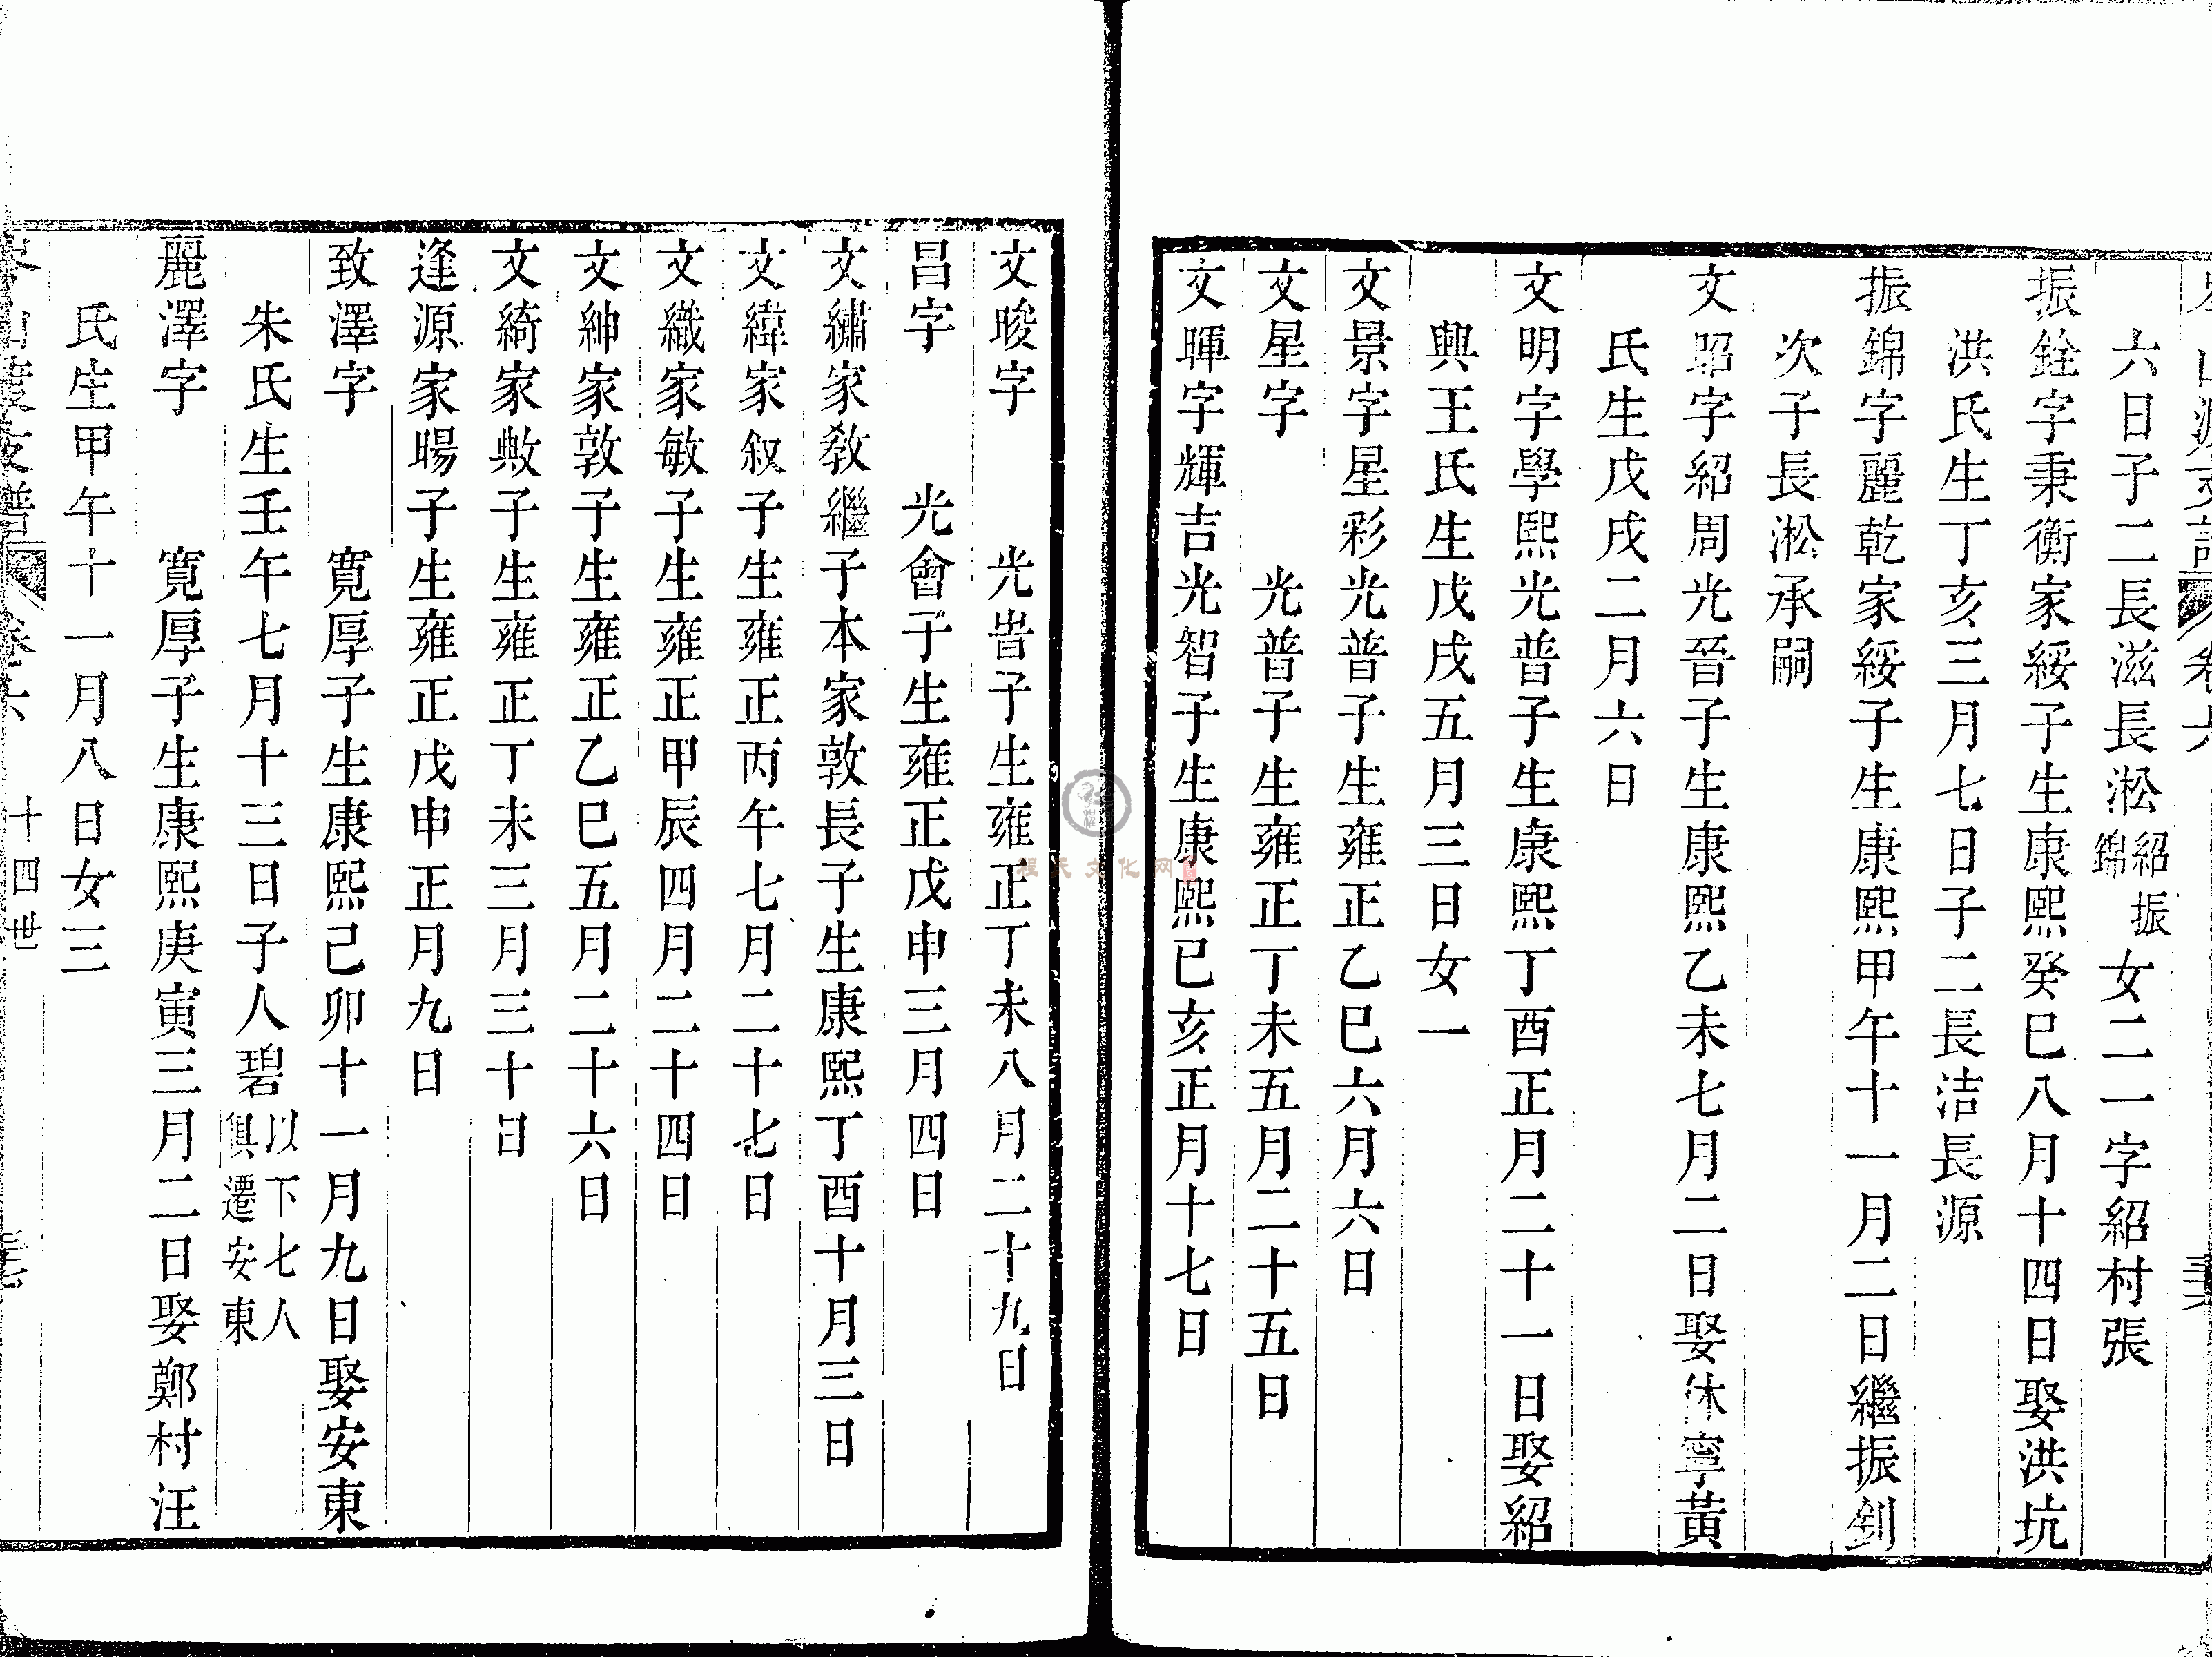 六日子二長滋長淞紹振錦女二一字紹村張
振銓字秉衡家綏子生康熙癸巳八月十四日娶洪坑
洪氏生丁亥三月七日子二長洁長源
振錦字麗乾家綏子生康熙甲午十一月二日繼振釗
次子長淞承嗣
文昭字紹周光晉子生康熙乙未七月二日娶休寧黃
氏生戊戌二月六日
文明字學熙光普子生康熙丁酉正月二十一日娶紹
興王氏生戊戌五月三日女一
文景字星彩光普子生雍正乙巳六月六日
文星字 光普子生雍正丁未五月二十五日
文暉字輝吉光智子生康熙已亥正月十七日
文晙字 光旹子生雍正丁未八月二十九日
昌字 光會子生雍正戊申三月四日
文繡家教繼子本家敦長子生康熙丁酉十月三日
文緯家叙子生雍正丙午七月二十七日
文織家敏子生雍正甲辰四月二十四日
文紳家敦子生雍正乙巳五月二十六日
文綺家敷子生雍正丁未三月三十日
逢源家暘子生雍正戊申正月九日
致澤字 寬厚子生康熙己卯十一月九日娶安東
朱氏生壬午七月十三日子人碧以下七人俱遷安東
麗澤字 寬厚子生康熙庚寅三月二日娶鄭村汪
氏生甲午十一月八日女三
十四世
程氏文化网